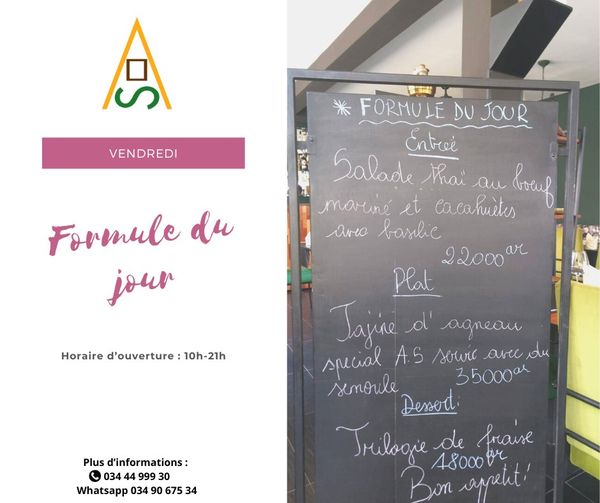 VENDREDI
Formule du
jour
Horaire d'ouverture : 10h-21h
Plus d'informations :
034 44 999 30
Whatsapp 034 90 675 34
* FORMULE DU JOUR
Entreé
Salade thaï au boeuf
mariné et cacahuètes
avec basilic
22000 ar
Plat
Tajine d'agneau
special A.S servic avec du
semoule 35000 ar
Dessert:
Trilogie de fraise
18000 ar
Bon appetit!